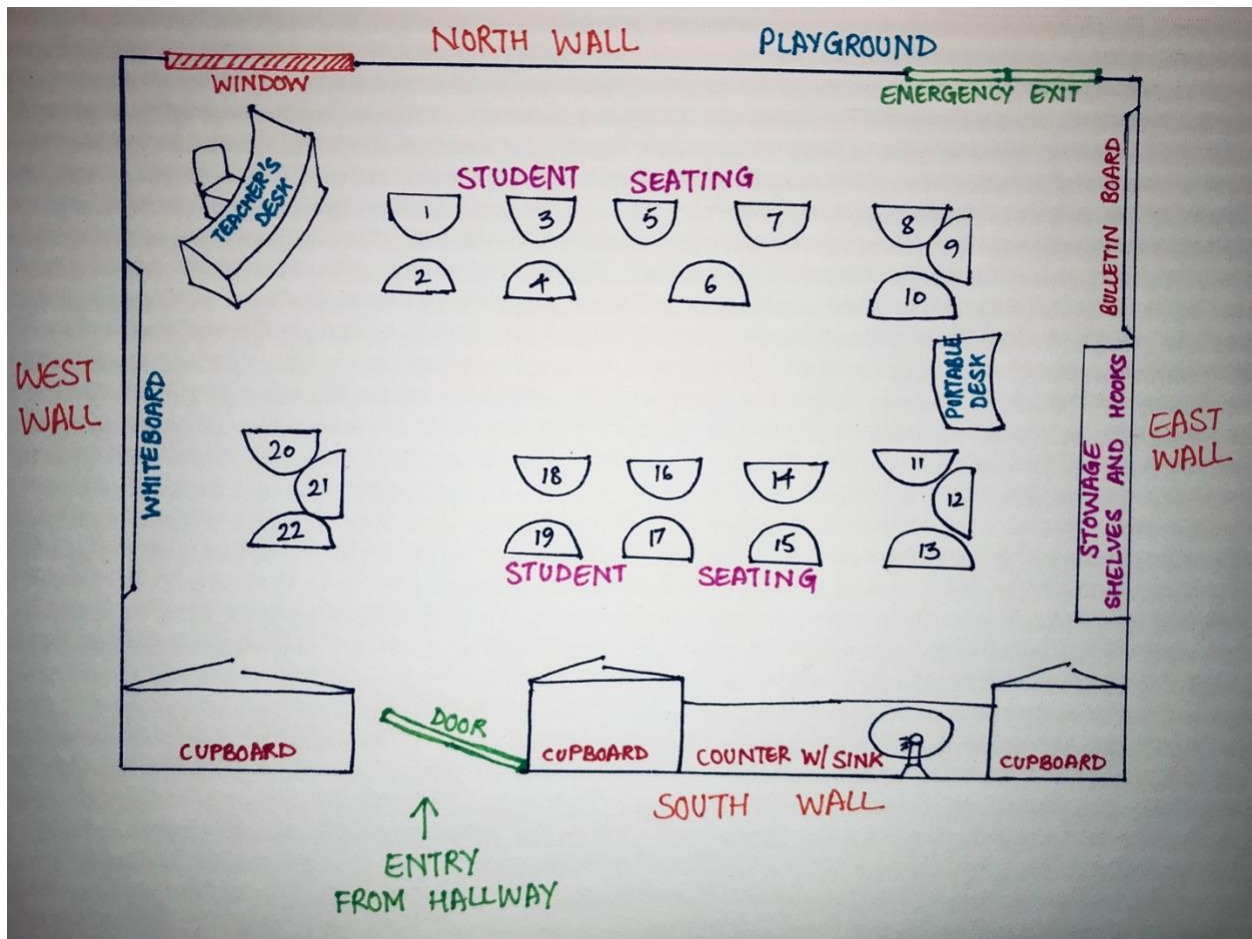 NORTH WALL
PLAYGROUND
WINDOW
EMERGENCY EXIT
TEACHER'S
DESK
STUDENT SEATING
1
3
5
7
8
9
2
4
6
10
BULLETIN BOARD
PORTABLE
DESK
WEST
WALL
WHITEBOARD
EAST
WALL
STOWAGE
SHELVES AND HOOKS
20
21
22
18
16
14
11
12
19
17
15
13
STUDENT SEATING
CUPBOARD
DOOR
CUPBOARD
COUNTER W/ SINK
CUPBOARD
SOUTH WALL
ENTRY
FROM HALLWAY